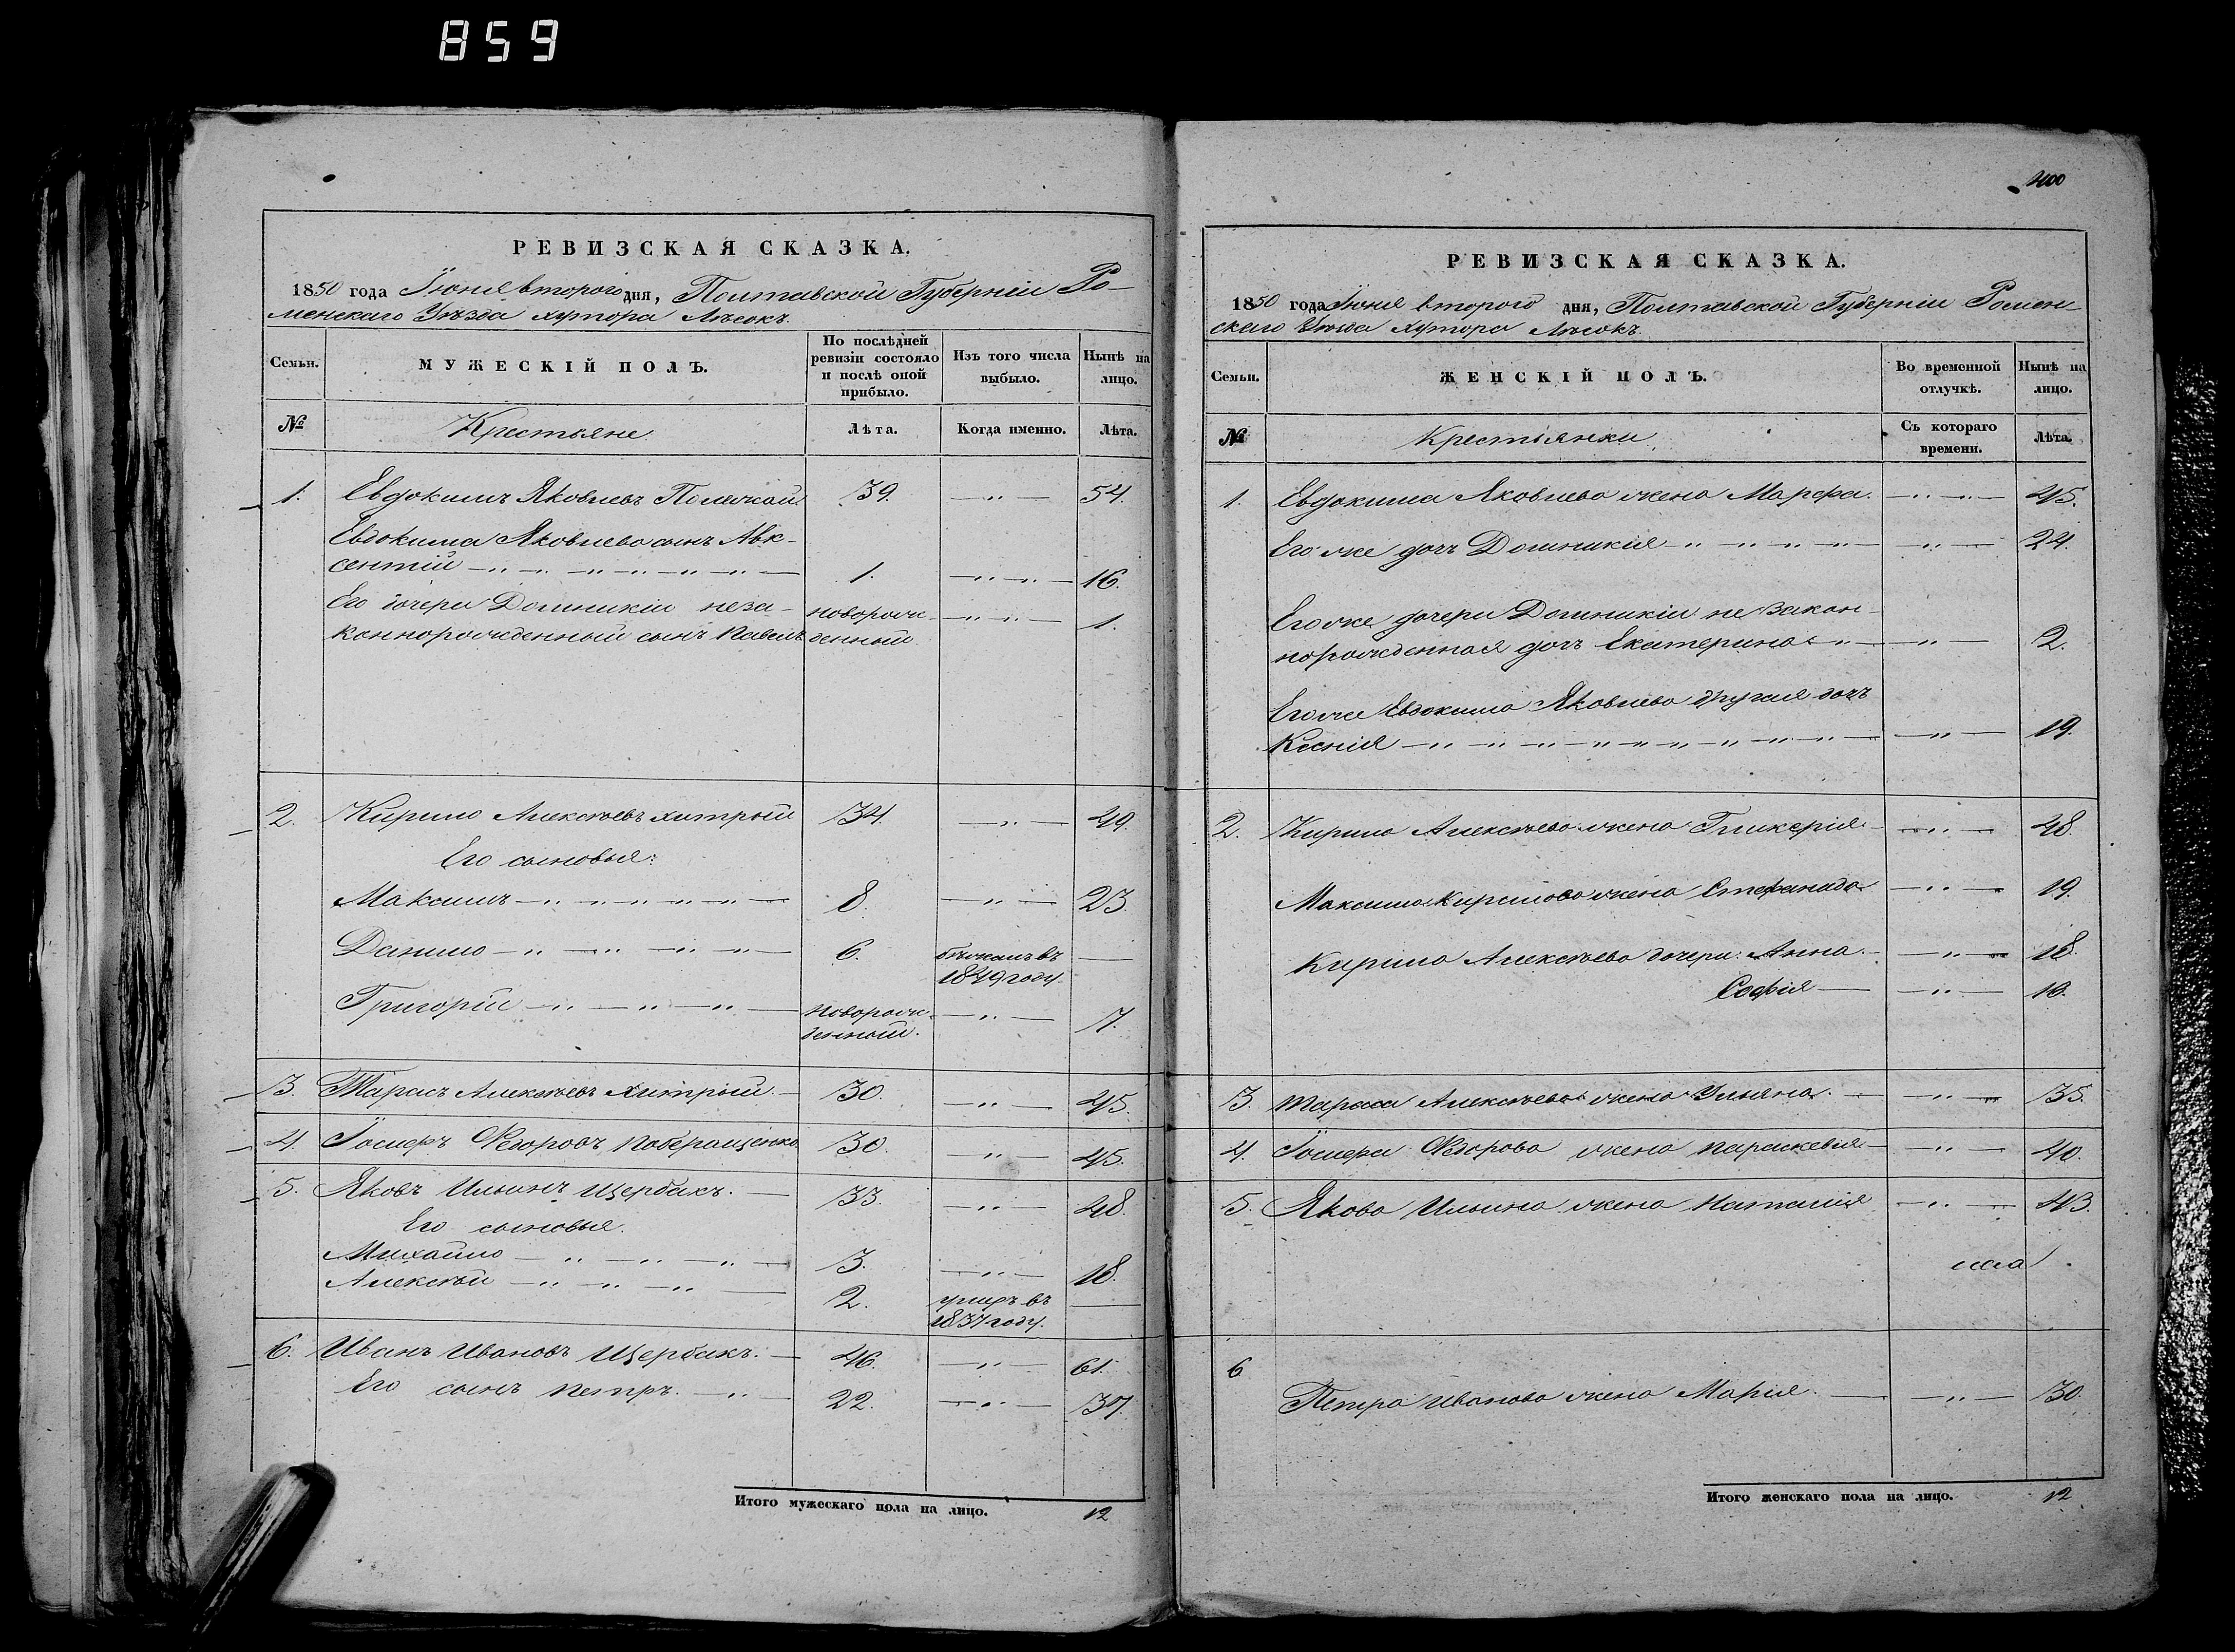 859
РЕВИЗСКАЯ СКАЗКА.
1850 года Іюня второго дня, Полтавской Губерніи Ро-
менскаго Уѣзда хутора Лѣсокъ.
Семьи.
МУЖЕСКІЙ ПОЛЪ.
По послѣдней ревизіи состояло и послѣ оной прибыло.
Изъ того числа выбыло.
Нынѣ на лицо.
№
Крестьяне.
Лѣта.
Когда именно.
Лѣта.
1. Евдокимъ Яковлевъ 39. — „ — 54.
Евдокима Яковлева сынъ Авк-
сентій — „ — 1. — „ — 16.
Его дочери Домникіи неза- новорож- — „ — 1.
коннорожденный сынъ Павелъ денный
2. Кирило Алексѣевъ хитрый 34. — „ — 49.
Его сыновья:
Максимъ — „ — 8. — „ — 23.
Данило — „ — 6. бѣжалъ въ —
1849 году.
Григорій — „ — новорож- — „ — 7.
денный.
3. Тарасъ Алексѣевъ хитрый. — 30. — „ — 45.
4. Іосифъ Ѳедоровъ 30. — „ — 45.
5. Яковъ Ильинъ Щербакъ. — 33. — „ — 48.
Его сыновья.
Михайло — „ — 3. — „ — 18.
Алексѣй — „ — 2. умеръ въ —
1837 году.
6. Иванъ Ивановъ Щербакъ. — 46. — „ — 61.
Его сынъ Петръ. — „ — 22. — „ — 37.
Итого мужескаго пола на лицо. 12
400
РЕВИЗСКАЯ СКАЗКА.
1850 года Іюня второго дня, Полтавской Губерніи Ромен-
скаго Уѣзда хутора Лѣсокъ.
Семьи.
ЖЕНСКІЙ ПОЛЪ.
Во временной отлучкѣ.
Нынѣ на лицо.
№
Крестьянки
Съ котораго времени.
Лѣта.
1. Евдокима Яковлева жена Марфа. — „ — 45.
Его же дочь Домникія — „ — 24.
Его же дочери Домникіи не закон-
норожденная дочь Екатерина — „ — 2.
Его же Евдокима Яковлева другая дочь
Ксенія — „ — 19.
2. Кирила Алексѣева жена Гликерія — „ — 48.
Максима Кирилова жена Стефанида — „ — 19.
Кирила Алексѣева дочери: Анна — „ — 18.
Софія — „ — 10.
3. Тараса Алексѣева жена Ульяна. — „ — 35.
4. Іосифа Ѳедорова жена Параскевія — „ — 40.
5. Якова Ильина жена Наталія — „ — 43.
6
Петра Иванова жена Марія. — „ — 30.
Итого женскаго пола на лицо. 12